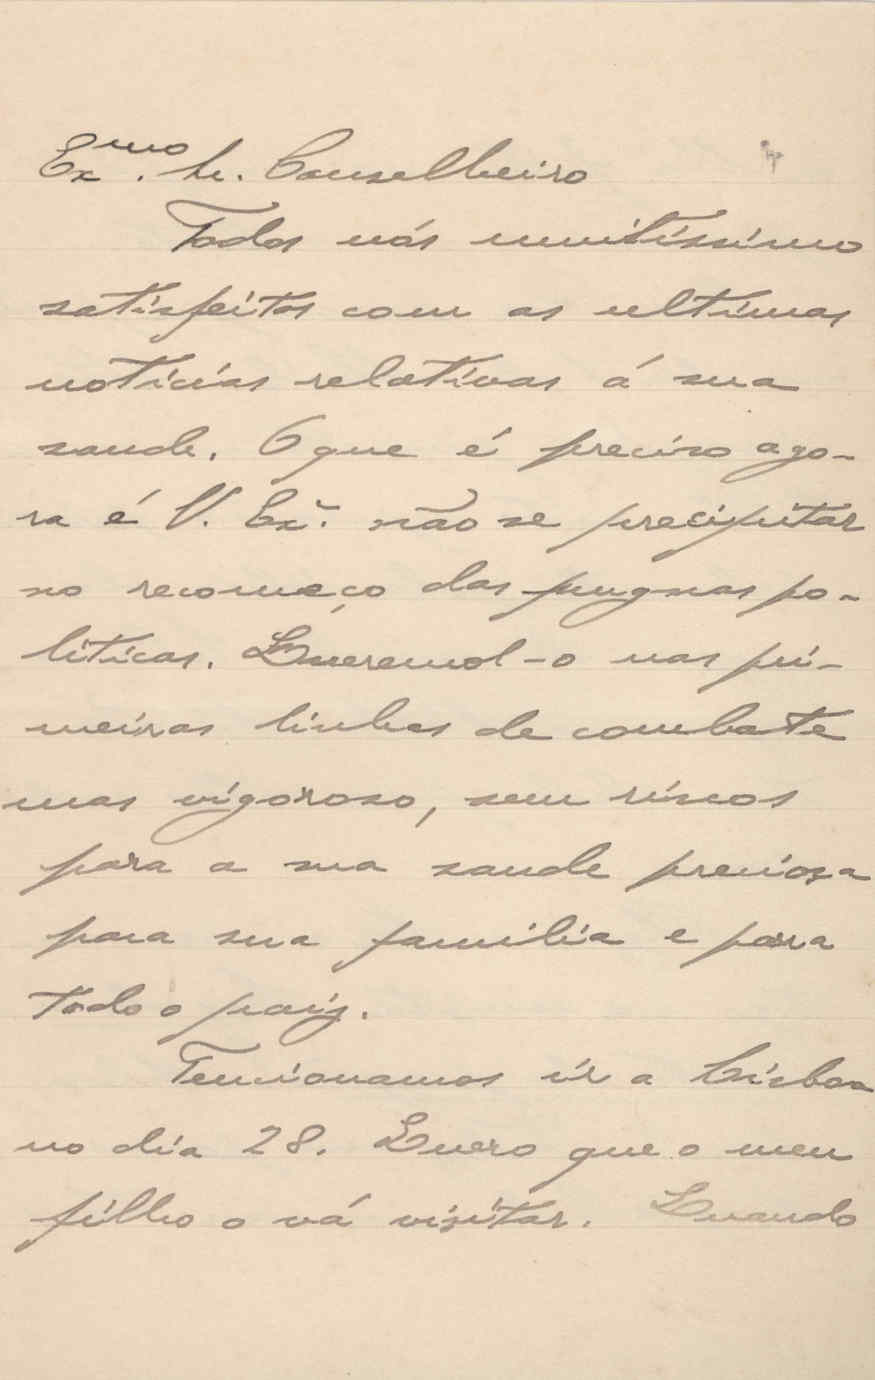 Exmo. Sr. Conselheiro
Todos nós muitissimo
satisfeitos com as ultimas
noticias relativas á sua
saude. O que é preciso ago-
ra é V. Exª. não se precipitar
no recomeço das pugnas po-
liticas. Queremol-o nas pri-
meiras linhas de combate
mas vigoroso, sem riscos
para a sua saude preciosa
para sua familia e para
todo o paiz.
Tencionamos ir a Lisboa
no dia 28. Quero que o meu
filho o vá visitar. Quando